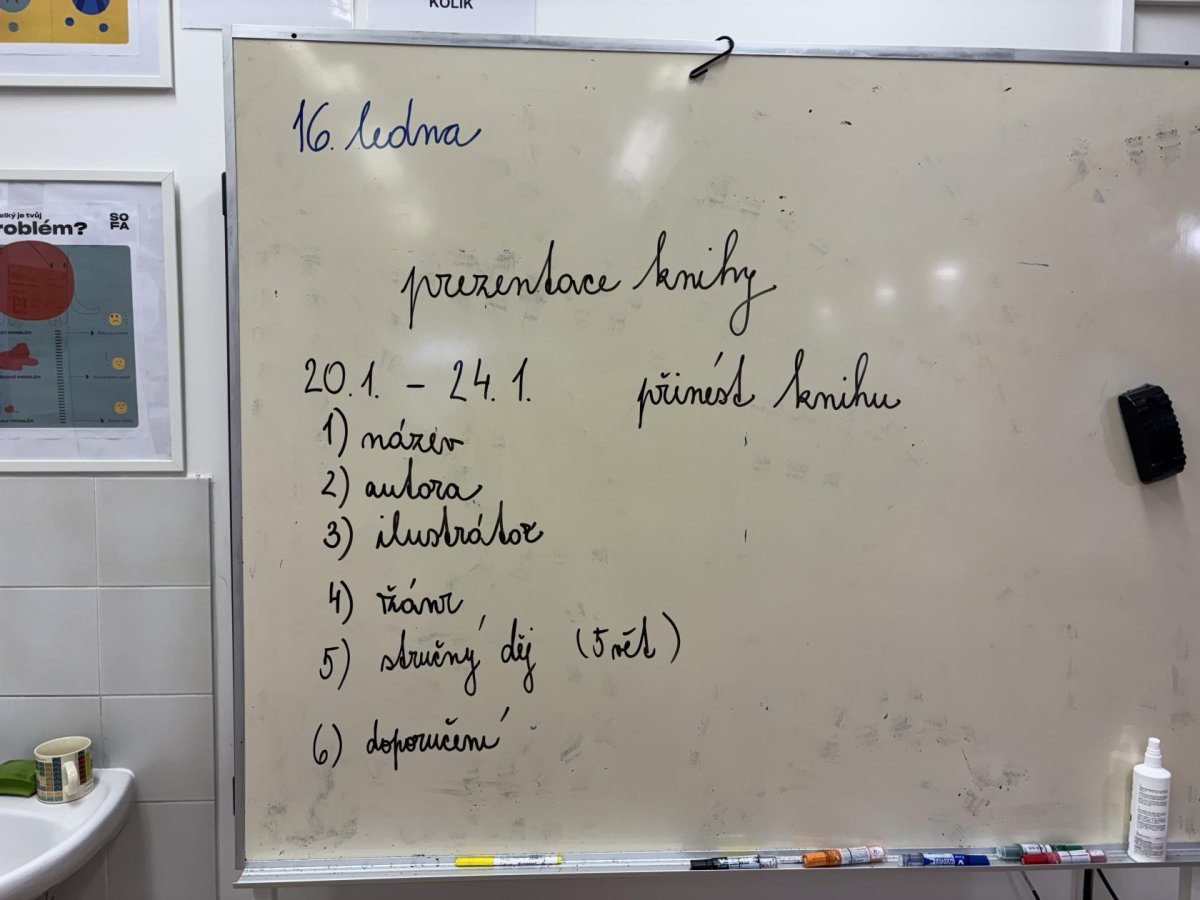 KOLIK
16. ledna
prezentace knihy
20.1. – 24.1. přinést knihu
1) název
2) autora
3) ilustrátor
4) žánr
5) stručný děj (5 vět)
6) doporučení
elký je tvůj
roblém?
SO
FA